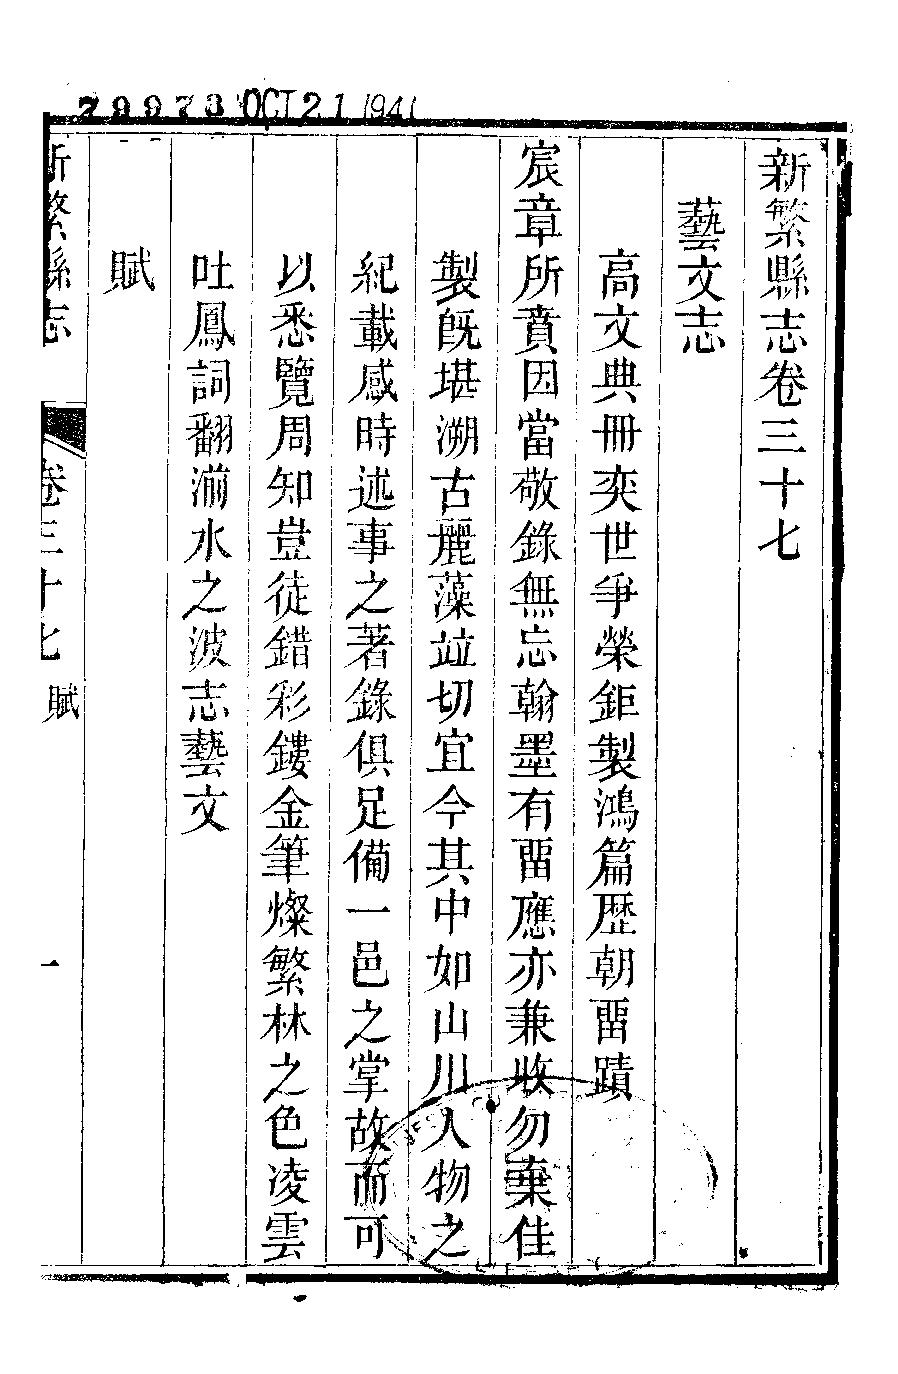 79973 OCT 21 1941
新繁縣志卷三十七
藝文志
高文典冊奕世爭榮鉅製鴻篇歷朝畱蹟
宸章所賁因當敬錄無忘翰墨有畱應亦兼收勿棄佳
製既堪溯古麗藻竝切宜今其中如山川人物之
紀載感時述事之著錄俱足備一邑之掌故而可
以悉覽周知豈徒錯彩鏤金筆燦繁林之色凌雲
吐鳳詞翻湔水之波志藝文
賦
新繁縣志 卷三十七 賦 一